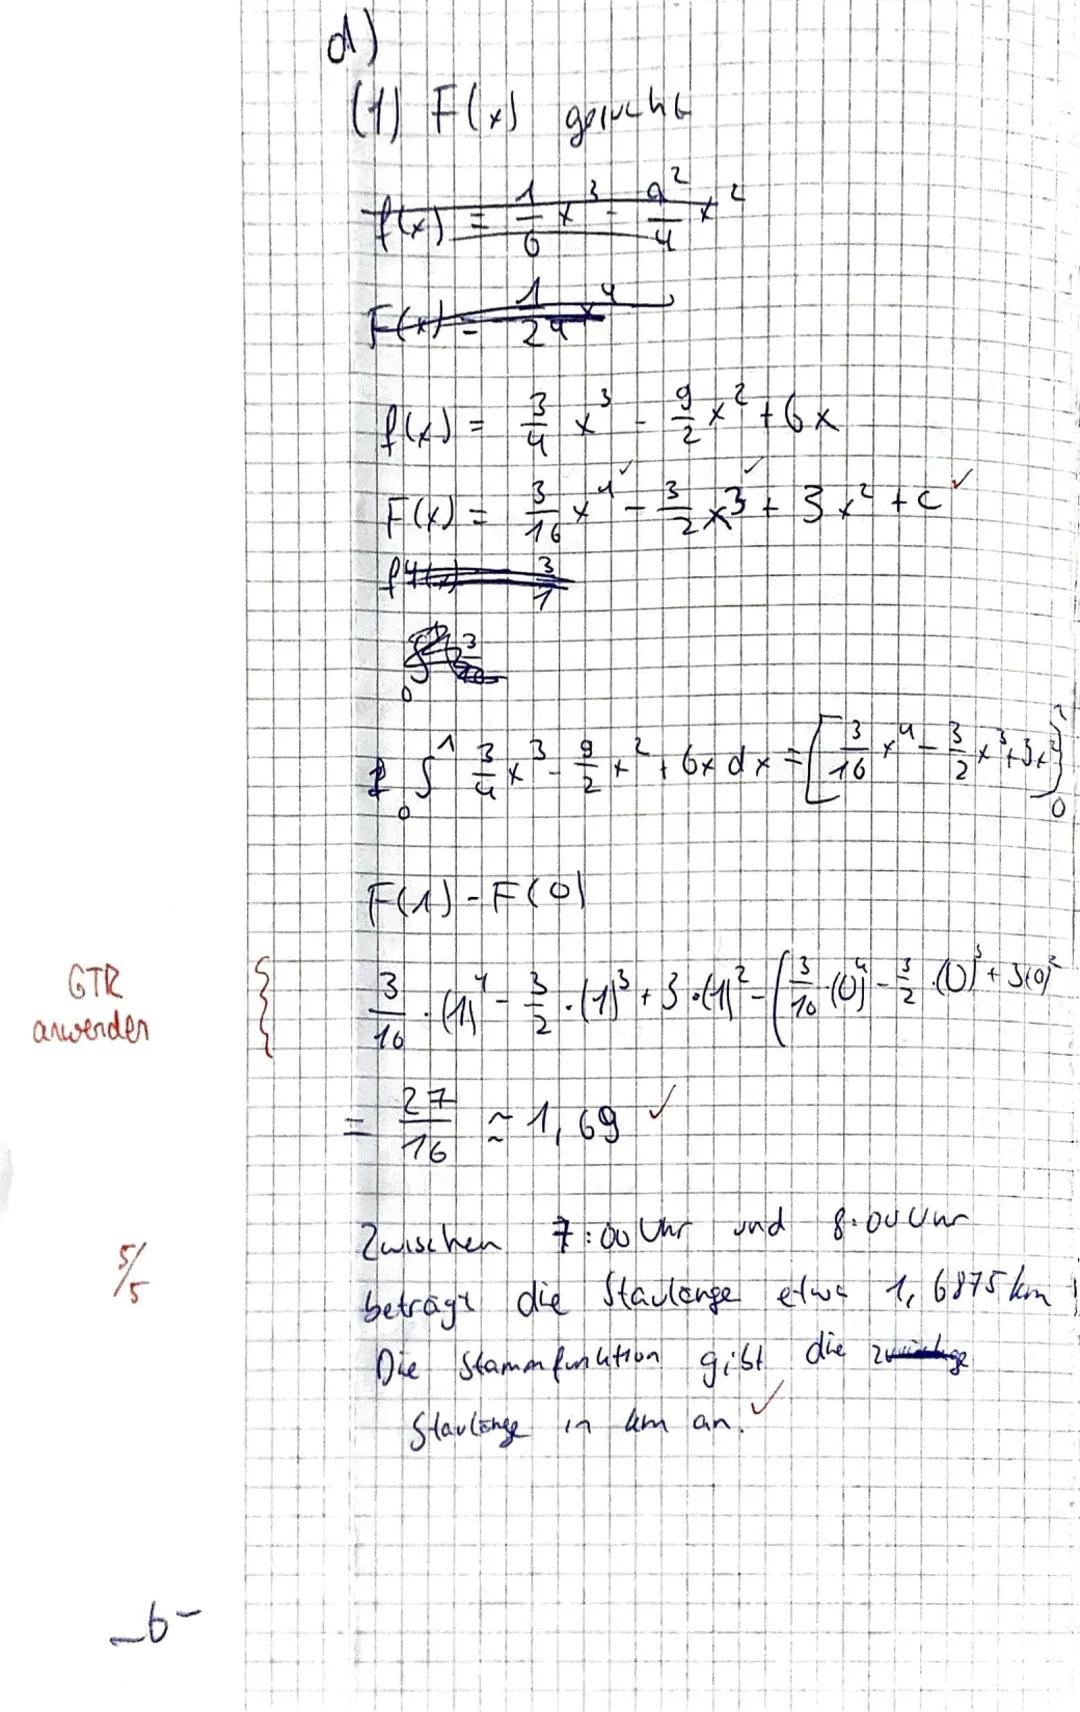 d)
(1) F(x) gesucht
f(x) = 1/6 x^3 - 9^2/4 x^2
F(x) = 1/24 x^4
f(x) = 3/4 x^3 - 9/2 x^2 + 6x
F(x) = 3/16 x^4 ✓ - 3/2 x^3 ✓ + 3x^2 + c ✓
3/1
0 3
∫_0^1 3/4 x^3 - 9/2 x^2 + 6x dx = [3/16 x^4 - 3/2 x^3 + 3x^2]_0
F(1) - F(0)
GTR
anwenden
3/16 · (1)^4 - 3/2 · (1)^3 + 3 · (1)^2 - (3/16 · (0)^4 - 3/2 · (0)^3 + 3(0)^2
= 27/16 ≈ 1,69 ✓
Zwischen 7:00 Uhr und 8:00 Uhr
5/5
beträgt die Staulänge etwa 1,6875 km
Die Stammfunktion gibt die
Staulänge in km an. ✓
-6-